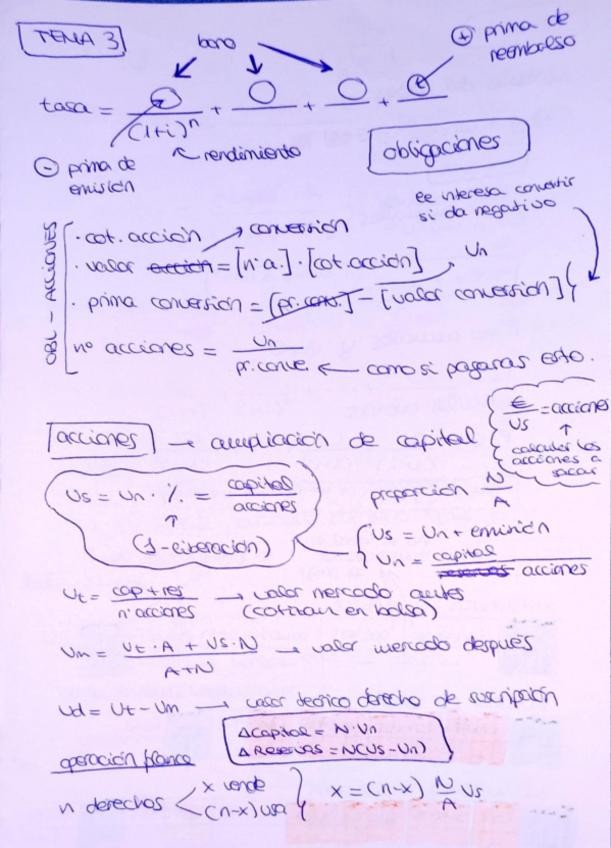 TEMA 3
bono
+ prima de reembolso
tasa = ___ + ___ + ___ + ___
(1+i)^n
↖ rendimiento
- prima de emisión
obligaciones
le interesa convertir si da negativo
OBL - ACCIONES
· cot. acción
conversión
· valor acción = [nº a.] · [cot. acción]
Vn
· prima conversión = [pr. conv.] - [valor conversión]
nº acciones = Vn / pr. conve. ← como si pagaras esto.
acciones → ampliación de capital
€ / Vs = acciones
↑
calcular las acciones a sacar
Vs = Vn · % = capital / acciones
↑
(1-liberación)
proporción N / A
Vs = Vn + emisión
Vn = capital / reservas acciones
Vt = cap + res / nº acciones → valor mercado antes
(cotizan en bolsa)
Vm = Vt · A + Vs · N / A+N → valor mercado después
Vd = Vt - Vm → valor teórico derecho de suscripción
Δ Capital = N · Vn
Δ Reservas = N(Vs - Vn)
operación blanca
n derechos < x vende
(n-x) usa
x = (n-x) N/A Vs